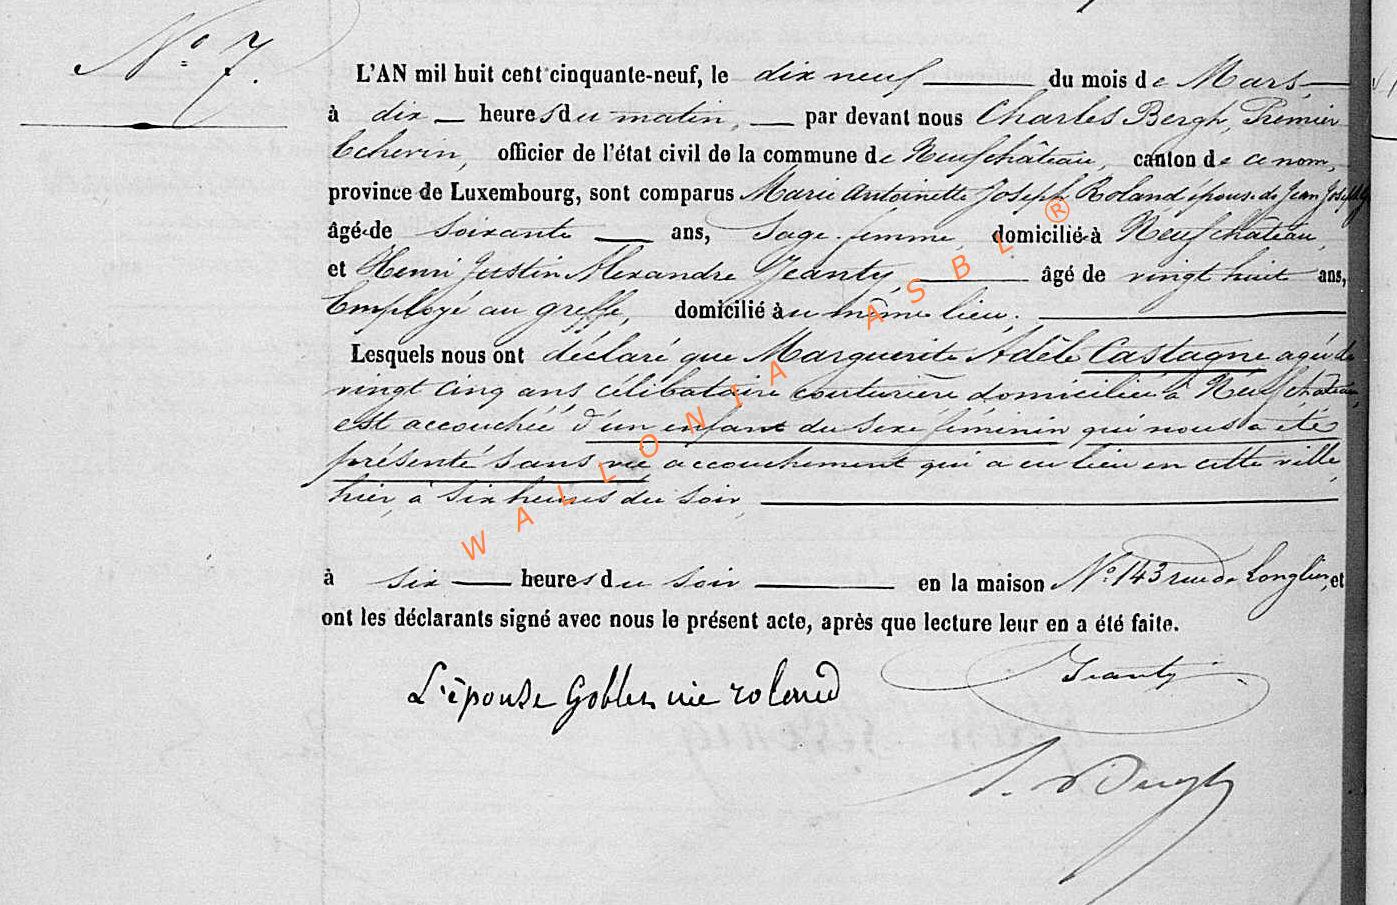 N° 7.
L'AN mil huit cent cinquante-neuf, le dix neuf du mois de Mars,
à dix heures du matin, par devant nous Charles Bergh, Premier
Echevin, officier de l'état civil de la commune de Neufchâteau, canton de ce nom,
province de Luxembourg, sont comparus Marie Antoinette Joseph Roland épouse de Jean Joseph
âgé de soixante ans, Sage-femme, domicilié à Neufchâteau,
et Henri Justin Alexandre Jeanty, âgé de vingt huit ans,
Employé au greffe, domicilié au même lieu.
Lesquels nous ont déclaré que Marguerite Adèle Castagne agée de
vingt cinq ans célibataire couturière domiciliée à Neufchâteau,
est accouchée d'un enfant du sexe féminin qui nous a été
présenté sans vie accouchement qui a eu lieu en cette ville,
hier, à six heures du soir,
à six heures du soir en la maison N° 143 rue de Longlier, et
ont les déclarants signé avec nous le présent acte, après que lecture leur en a été faite.
L'épouse née roland
Jeanty
Bergh
WALLONIA ASBL ®